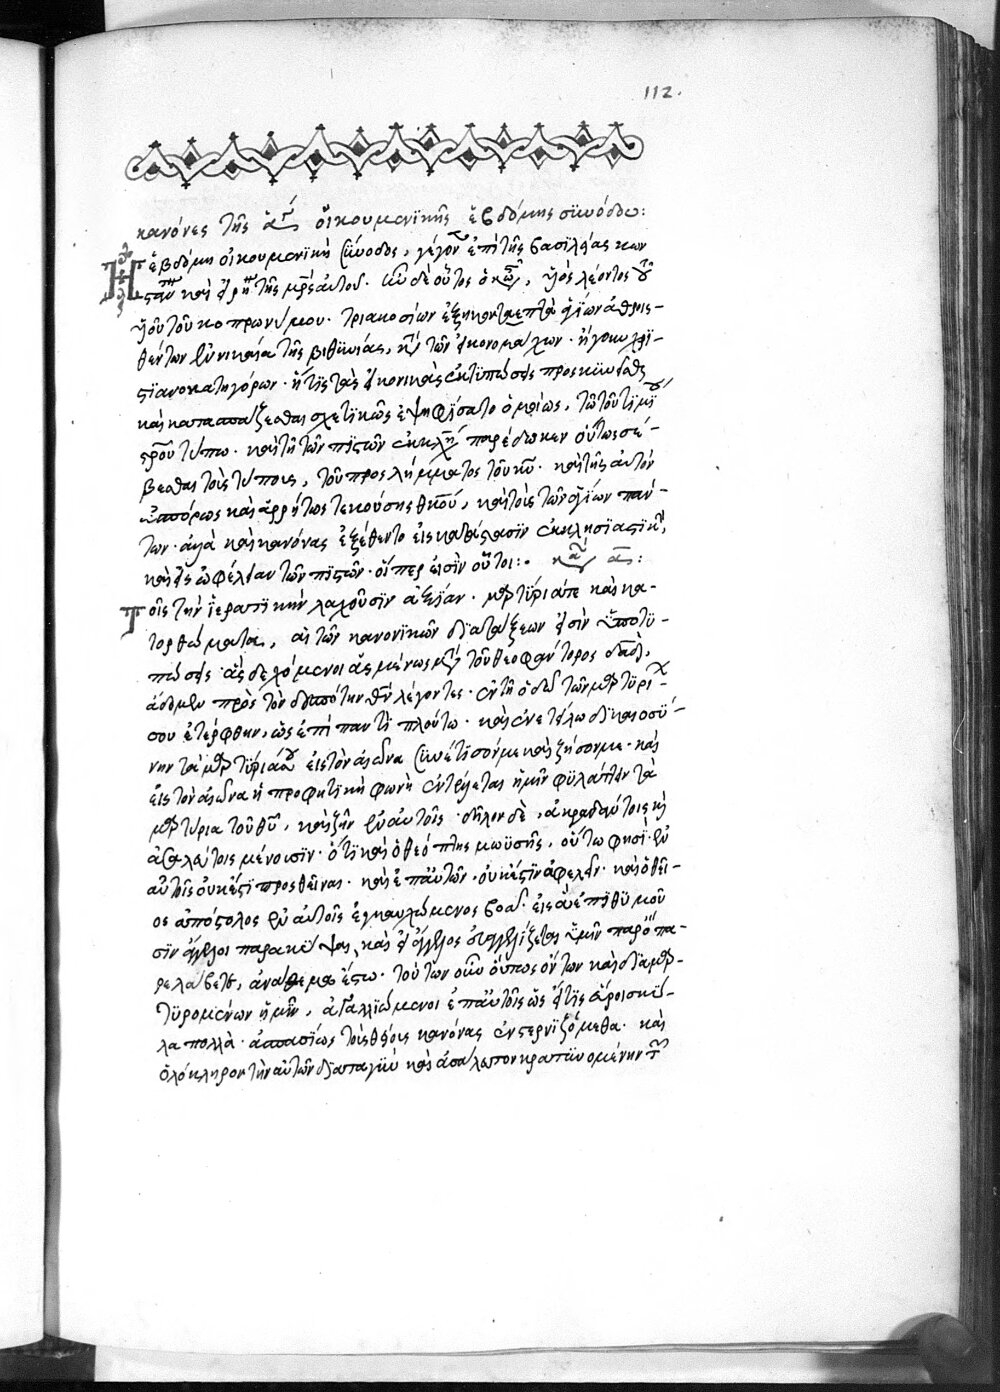 112.
κανόνες τῆς ἁγ οἰκουμενϊκῆς ἑβδόμης σϊνόδου:
Ἡ ἑβδόμη οἰκουμενϊκὴ σύνοδος, γέγον ἐπὶ τῆς βασιλείας κων
καὶ εἰρή τῆς μρς αὐτοῦ. ἦν δὲ οὗτος ὁ κων, υἱὸς λέοντος τοῦ
υἱοῦ τοῦ κοπρωνύμου. τριακοσίων ἑξήκοντα επτὰ ἁγίων ἀθροισ-
θέντων ἐν νικαία τῆς βιθυνίας, κατὰ τῶν εἰκονομάχων. ἤγουν χρϊ-
στϊανοκατηγόρων. ἥτϊς τὰς εἰκονικὰς ἐκτϊπώσεις προσκυνεῖσθαι
καὶ κατασπάζεσθαι σχετϊκῶς ἐψηφίσατο ὁμοίως, τῶ τοῦ τϊμίου
στροῦ τύπω. καὶ τῇ τῶν πϊστῶν ἐκκλη παρέδωκεν οὕτως σέ-
βεσθαι τοῖς τύποις, τοῦ προσλήμματος τοῦ κυ. καὶ τῆς αὐτὸν
ἀσπόρως καὶ ἀρρήτως τεκούσης θκου, καὶ τοῖς τῶν ἁγίων πάν-
των. ἀλλὰ καὶ κανόνας ἐξέθεντο εἰς κατάστασϊν ἐκκλησϊαστϊκὴν,
καὶ εἰς ὠφέλειαν τῶν πϊστῶν. οἵπερ εἰσὶν οὗτοι:. καν α:
Τοῖς τὴν ἱερατϊκὴν λαχοῦσϊν ἀξίαν. μαρτύριά τε καὶ κα-
τορθώματα, αἱ τῶν κανονϊκῶν δϊατάξεων εἰσὶν ὑποτϋ-
πώσεις ἃς δεχόμενοι ἀσμένως μετὰ τοῦ θεοφάντορος δαδ,
ἄδομεν πρὸς τὸν δεσπότην θν λέγοντες. ἐν τῇ ὁδῶ τῶν μαρτϋρί-
σου ἐτέρφθην, ὡς ἐπὶ παντὶ πλούτω. καὶ ἐνετείλω δϊκαιοσύ-
νην τὰ μαρτύριά σου εἰς τὸν αἰῶνα συνέτϊσόν με καὶ ζήσομαι. καὶ
εἰς τὸν αἰῶνα ἡ προφητϊκὴ φωνὴ ἐντέλλεται ἡμῖν φϋλάττειν τὰ
μαρτύρια τοῦ θυ, καὶ ζῆν ἐν αὐτοῖς δῆλον δὲ, ἀκραδάντοις καὶ
ἀσαλεύτοις μένουσϊν. ὅτϊ καὶ ὁ θεόπτης μωϋσῆς, οὕτω φησὶ. ἐν
αὐτοῖς οὐκ ἔστϊ προσθεῖναι. καὶ ἐπ αὐτῶν. οὐκ ἔστϊν ἀφελεῖν. καὶ ὁ θεῖ-
ος ἀπόστολος ἐν αὐτοῖς ἐγκαυχώμενος βοᾶ. εἰς ἃ ἐπϊθϋμοῦ
σϊν ἄγγελοι παρακύψαι, καὶ εἰ ἄγγελος εὐαγγελίζεται ὑμῖν παρ ὃ πα-
ρελάβετε, ἀνάθεμα ἔστω. τούτων οὖν οὕτως ὄντων καὶ δϊαμαρ-
τϋρομένων ἡμῖν, ἀγαλλϊώμενοι ἐπ αὐτοῖς ὡς εἴ τϊς εὕροι σκῦ-
λα πολλὰ. ἀσπασίως τοὺς θείους κανόνας ἐνστερνϊζόμεθα. καὶ
ὁλόκληρον τὴν αὐτῶν δϊαταγὴν καὶ ἀσάλευτον κρατϋνομένην τ